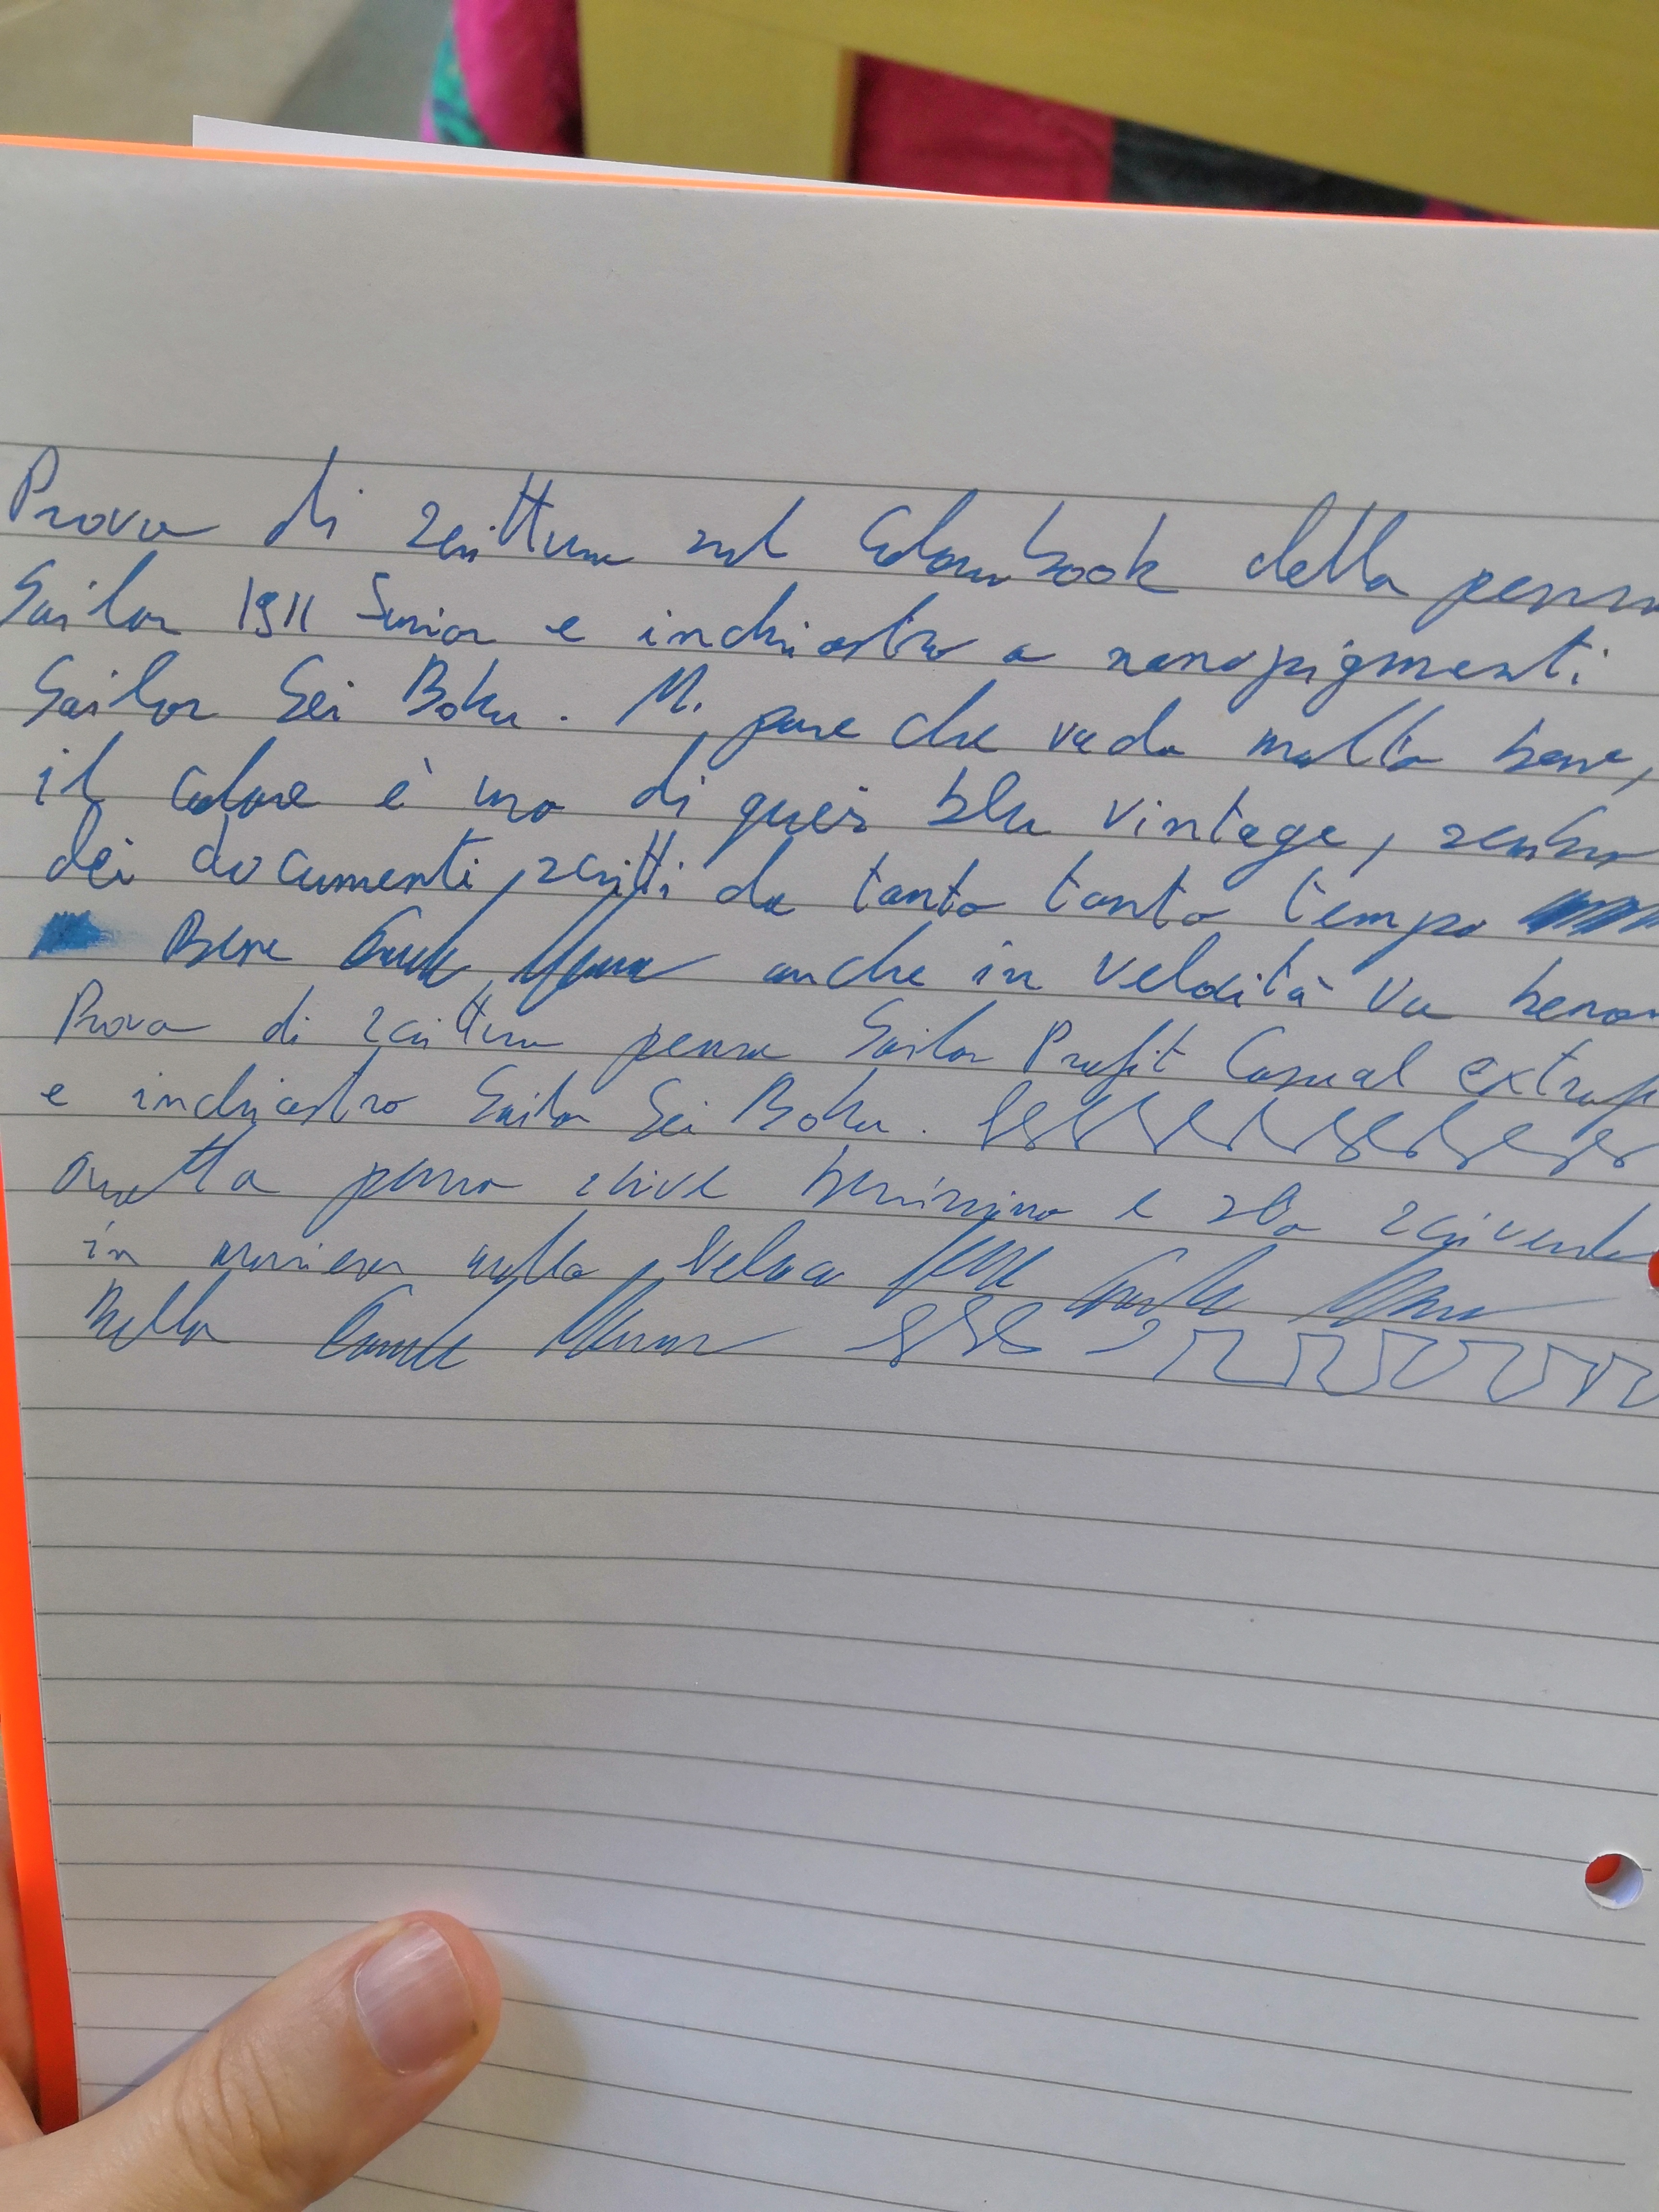 Prova di scrittura sul Colourbook della penna
Sailor 1911 Senior e inchiostro a nanopigmenti
Sailor Sei Boku. Mi pare che vada molto bene,
il colore è uno di quei blu vintage, sembra
dei documenti scritti da tanto tanto tempo
Bene anche in velocità va beno
Prova di scrittura penna Sailor Profit Casual extraf
e inchiostro Sailor Sei Boku.
Questa penna scrive benissimo e sto scrivendo
in maniera molto veloce
Bella